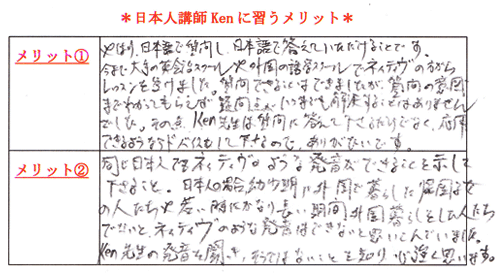 ＊日本人講師Kenに習うメリット＊
メリット①
やはり、日本語で質問し、日本語で答えていただけることです。
今まで大手の英会話スクールや外国の語学スクールでネイティヴの方から
レッスンを受けました。質問できることはできましたが、質問の意図
までわかってもらえず、疑問点がいつまでも解決することはありません
でした。その点、Ken先生は質問に答えて下さるだけでなく、応用
できるようなアドバイスもして下さるので、ありがたいです。
メリット②
同じ日本人でもネイティヴのような発音ができることを示して
下さること。日本人の場合、幼少期に外国で暮らした帰国子女
の人たちや若い時にかなり長い期間、外国暮らしをした人たち
でないと、ネイティヴのような発音はできないと思いこんでいました。
Ken先生の発音を聞き、そうではないことを知り、心強く思います。